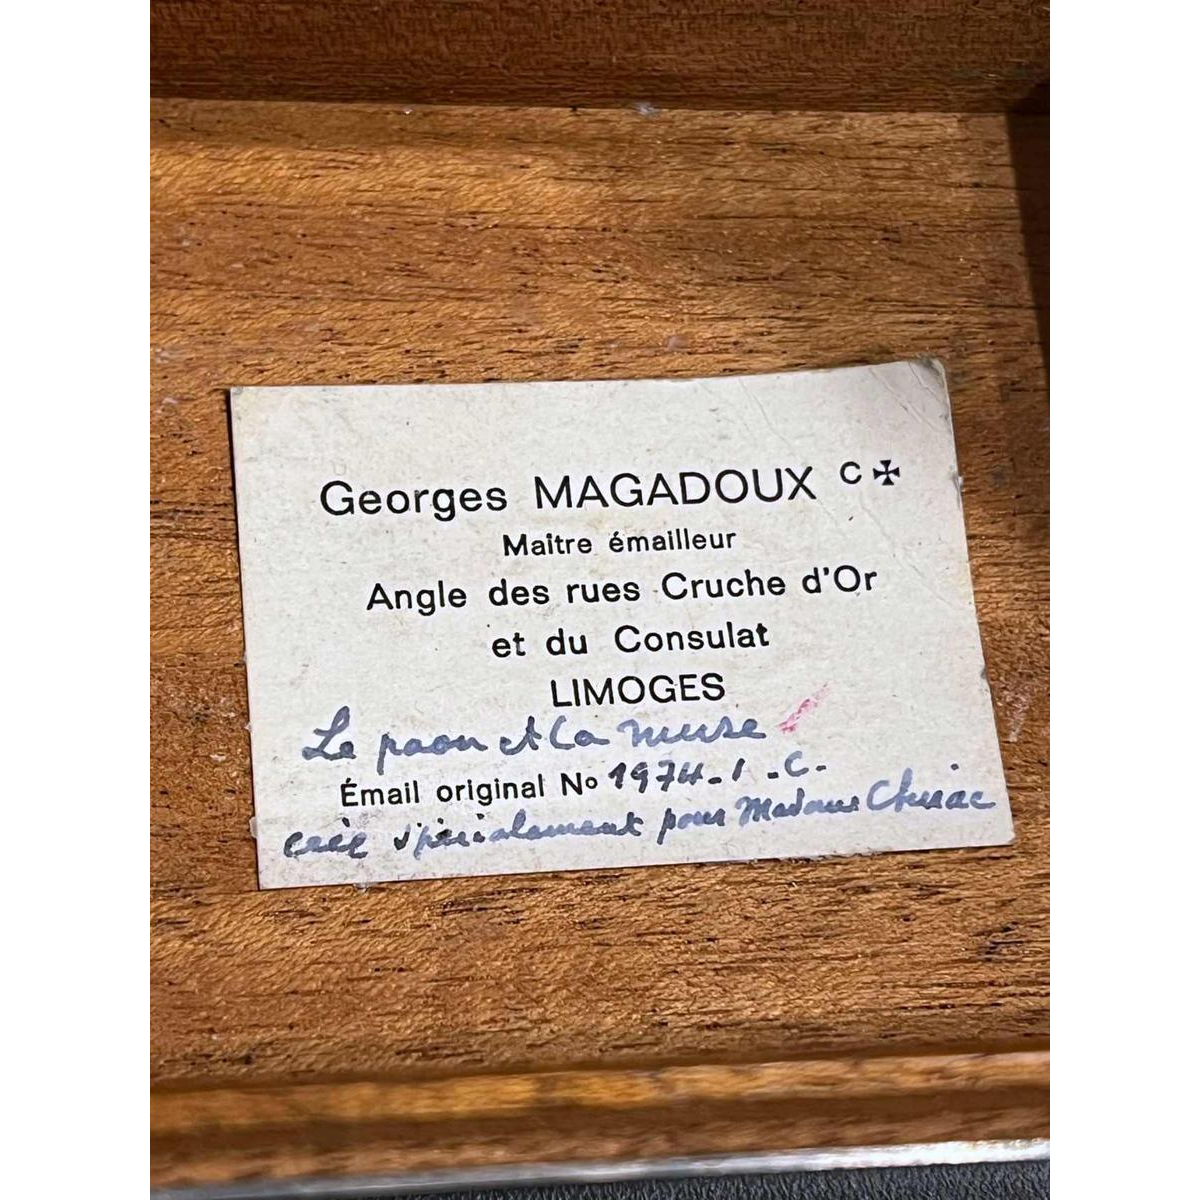 Georges MAGADOUX C✠
Maître émailleur
Angle des rues Cruche d'Or
et du Consulat
LIMOGES
Le paon et la muse
Émail original No 1974-1-C-
créé spécialement pour Madame Chirac